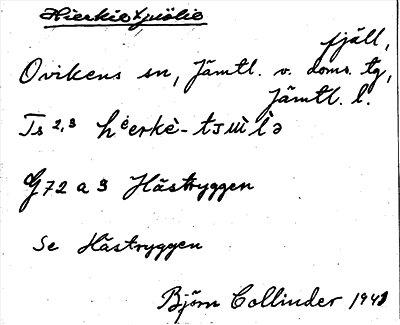 Hierkietjuölie
fjäll,
Ovikens sn, Jämtl. v. doms. tg,
Jämtl. l.
Ts 2,3 hꞌerkè- tᴊɯ̀lə
G72 a 3 Hästryggen
Se Hästryggen
Björn Collinder 1941